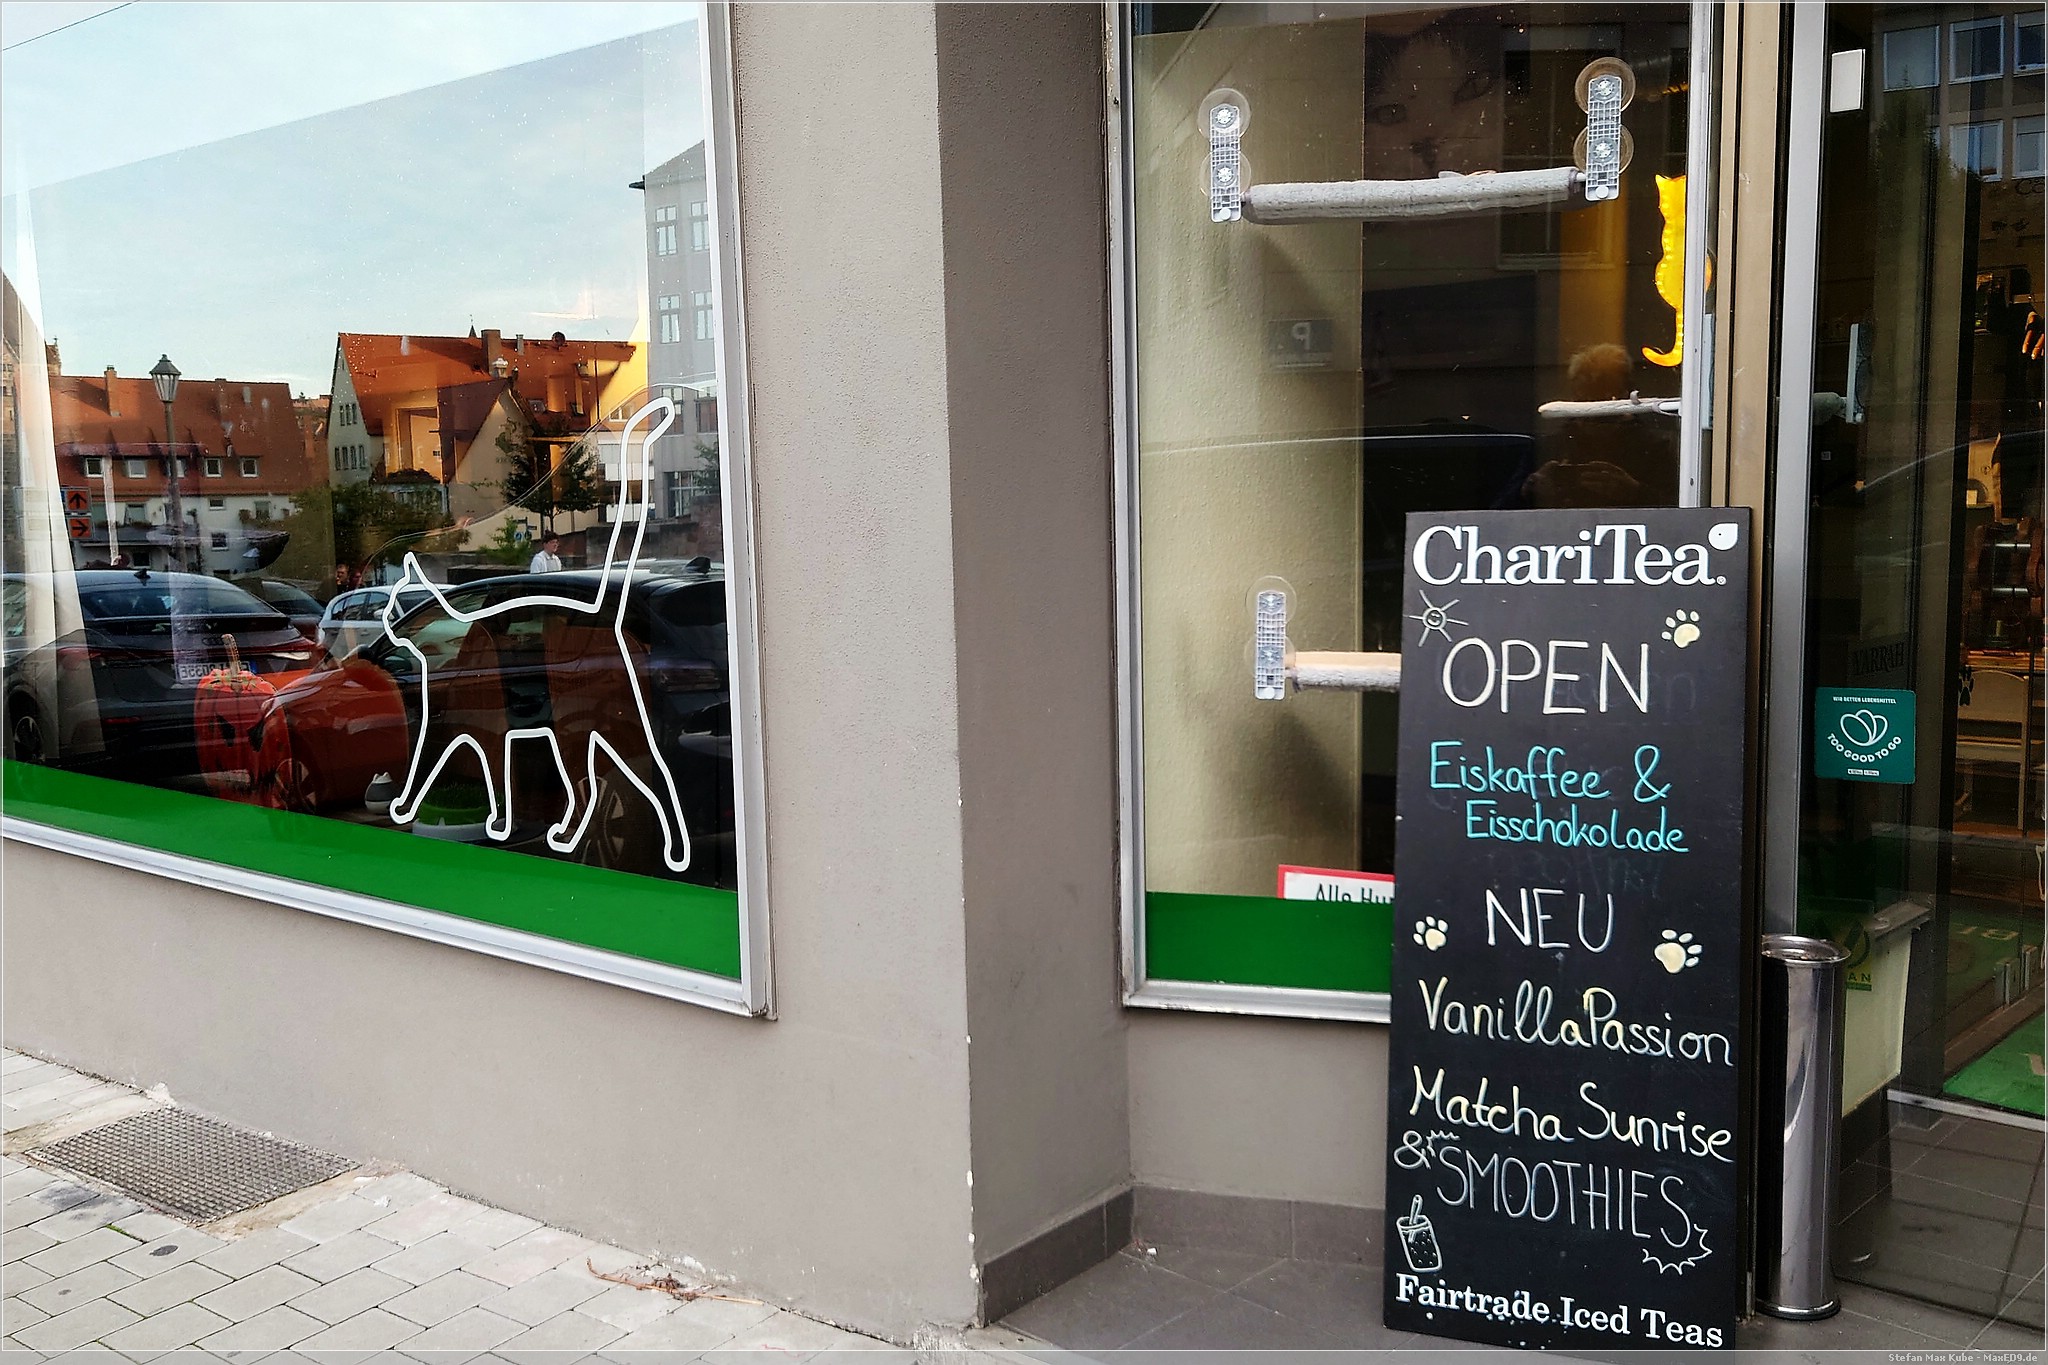 ChariTea
OPEN
Eiskaffee &
Eisschokolade
NEU
VanillaPassion
Matcha Sunrise
& SMOOTHIES
Fairtrade Iced Teas
Alle
WIR RETTEN LEBENSMITTEL
TOO GOOD TO GO
Stefan Max Kube - MaxED9.de